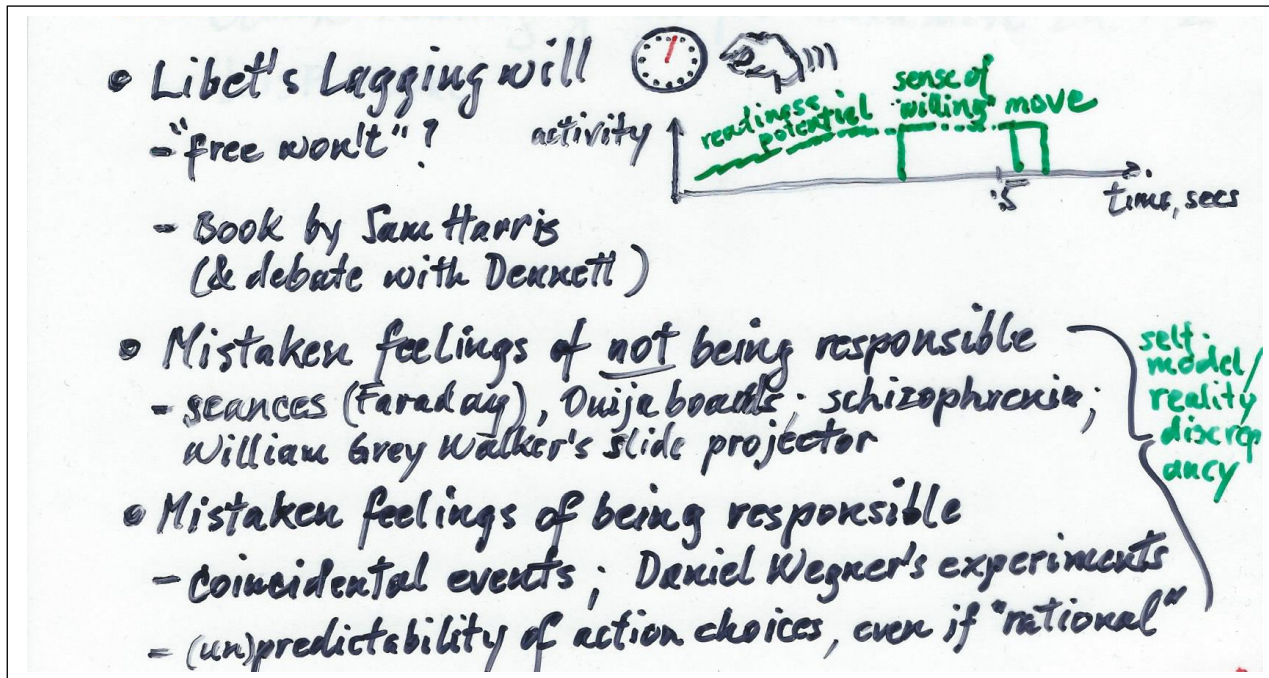 • Libet's Lagging will
- "free won't"?
activity
readiness
potential
sense of
"willing"
move
.5
time, secs
- Book by Sam Harris
(& debate with Dennett)
• Mistaken feelings of not being responsible
- seances (Faraday), Ouija boards; schizophrenia;
William Grey Walker's slide projector
self-
model/
reality
discrep
ancy
• Mistaken feelings of being responsible
- coincidental events; Daniel Wegner's experiments
- (un)predictability of action choices, even if "rational"